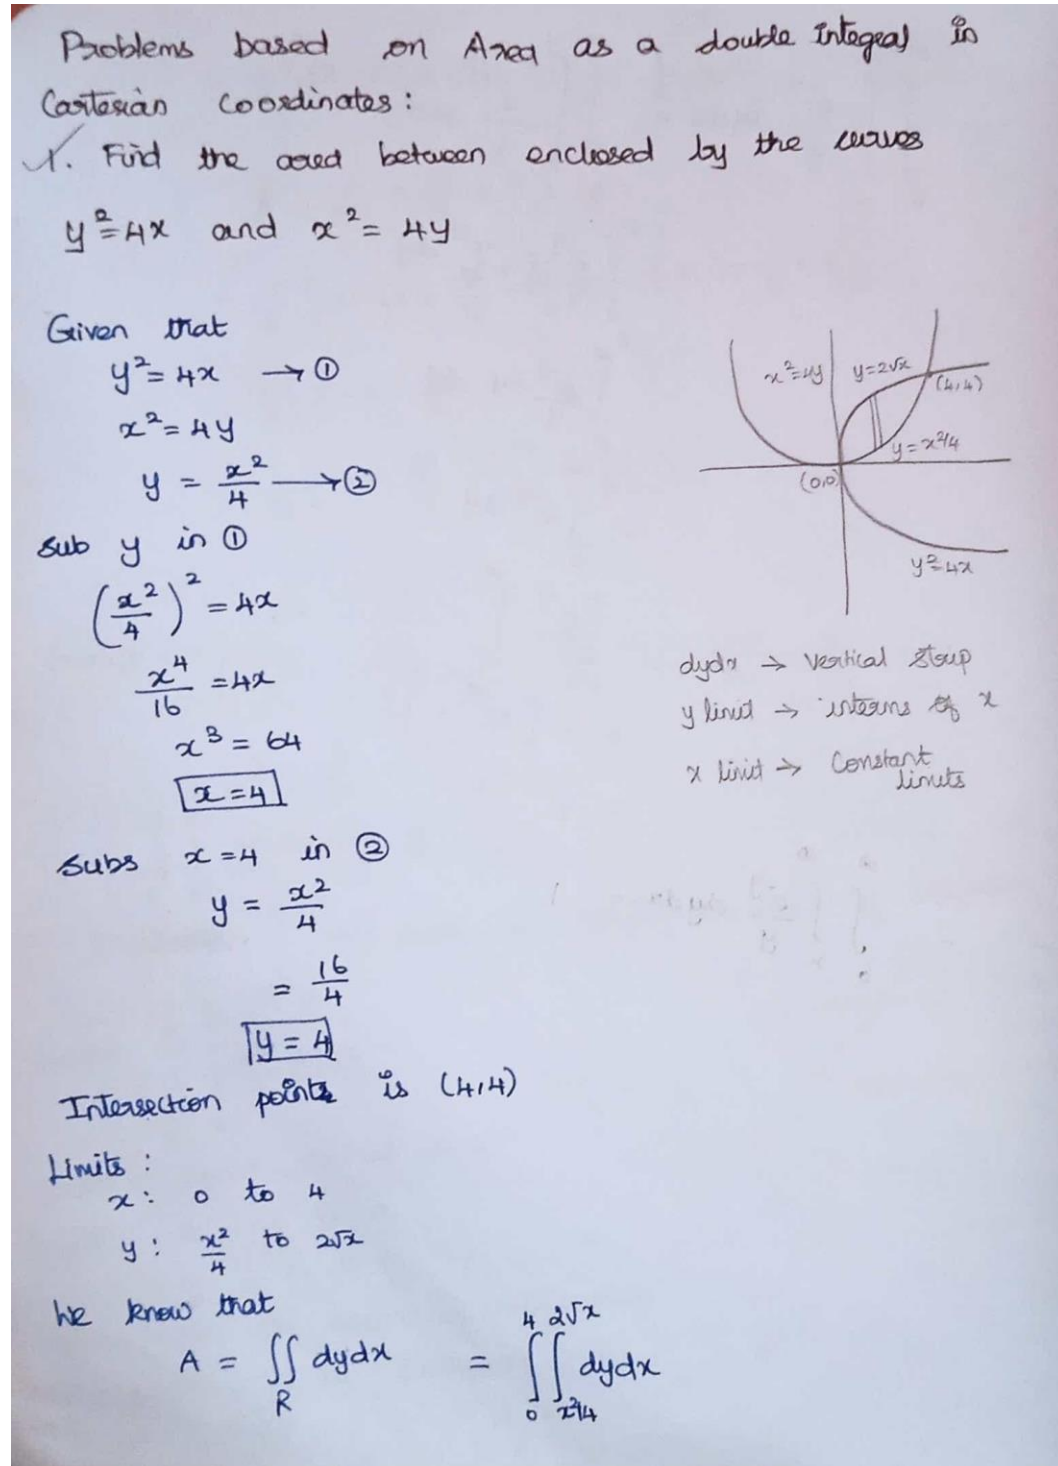 Problems based on Area as a double Integral in
Cartesian Coordinates:
1. Find the area between enclosed by the curves
y²=4x and x²=4y
Given that
y²=4x → ①
x²=4y
y = x²/4 → ②
Sub y in ①
(x²/4)² = 4x
x⁴/16 = 4x
x³ = 64
x=4
Subs x=4 in ②
y = x²/4
= 16/4
y = 4
Intersection points is (4,4)
Limits:
x: 0 to 4
y: x²/4 to 2√x
We know that
A = ∬_R dydx = ∫₀⁴ ∫_{x²/4}^{2√x} dydx
x²=4y
y=2√x
(4,4)
y=x²/4
(0,0)
y²=4x
dydx → vertical strip
y limit → interms of x
x limit → Constant
limits